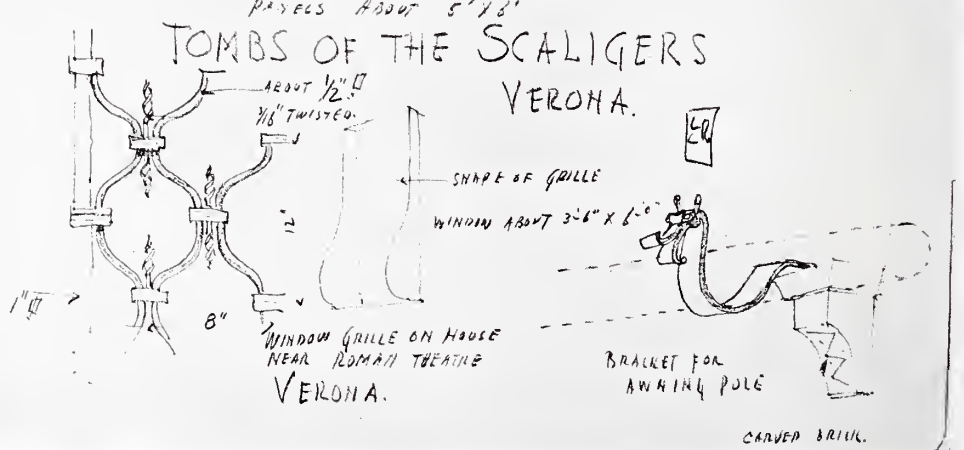 PANELS ABOUT 5" X 8"
TOMBS OF THE SCALIGERS
VERONA.
ABOUT 1/2"
TWISTED.
SHAPE OF GRILLE
WINDOW ABOUT 3'-6" X 6'-0"
12"
1"
8"
WINDOW GRILLE ON HOUSE
NEAR ROMAN THEATRE
VERONA.
BRACKET FOR
AWNING POLE
CARVED BRICK.